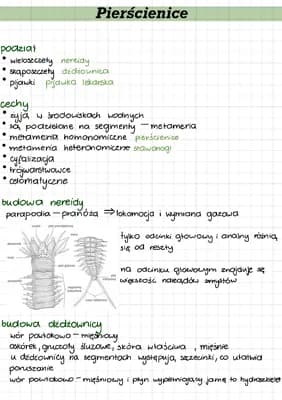 Pierścienice
podział
• wieloszczety nereidy
• skąposzczety dżdżownica
• pijawki pijawka lekarska
cechy
• żyją w środowiskach wodnych
• są podzielone na segmenty – metameria
• metameria homonomiczna pierścienice
• metameria heteronomiczna stawonogi
• cyfalizacja
• trójwarstwowce
• celomatyczne
budowa nereidy
parapodia – pranóża ⇒ lokomocja i wymiana gazowa
tylko odcinki głowowy i analny różnią
się od reszty
na odcinku głowowym znajduje się
większość narządów zmysłów
budowa dżdżownicy
wór powłokowo – mięśniowy
oskórek, gruczoły śluzowe, skóra właściwa, mięśnie
u dżdżownicy na segmentach występują szczecinki, co ułatwia
poruszanie
wór powłokowo – mięśniowy i płyn wypełniający jamę to hydroszkielet